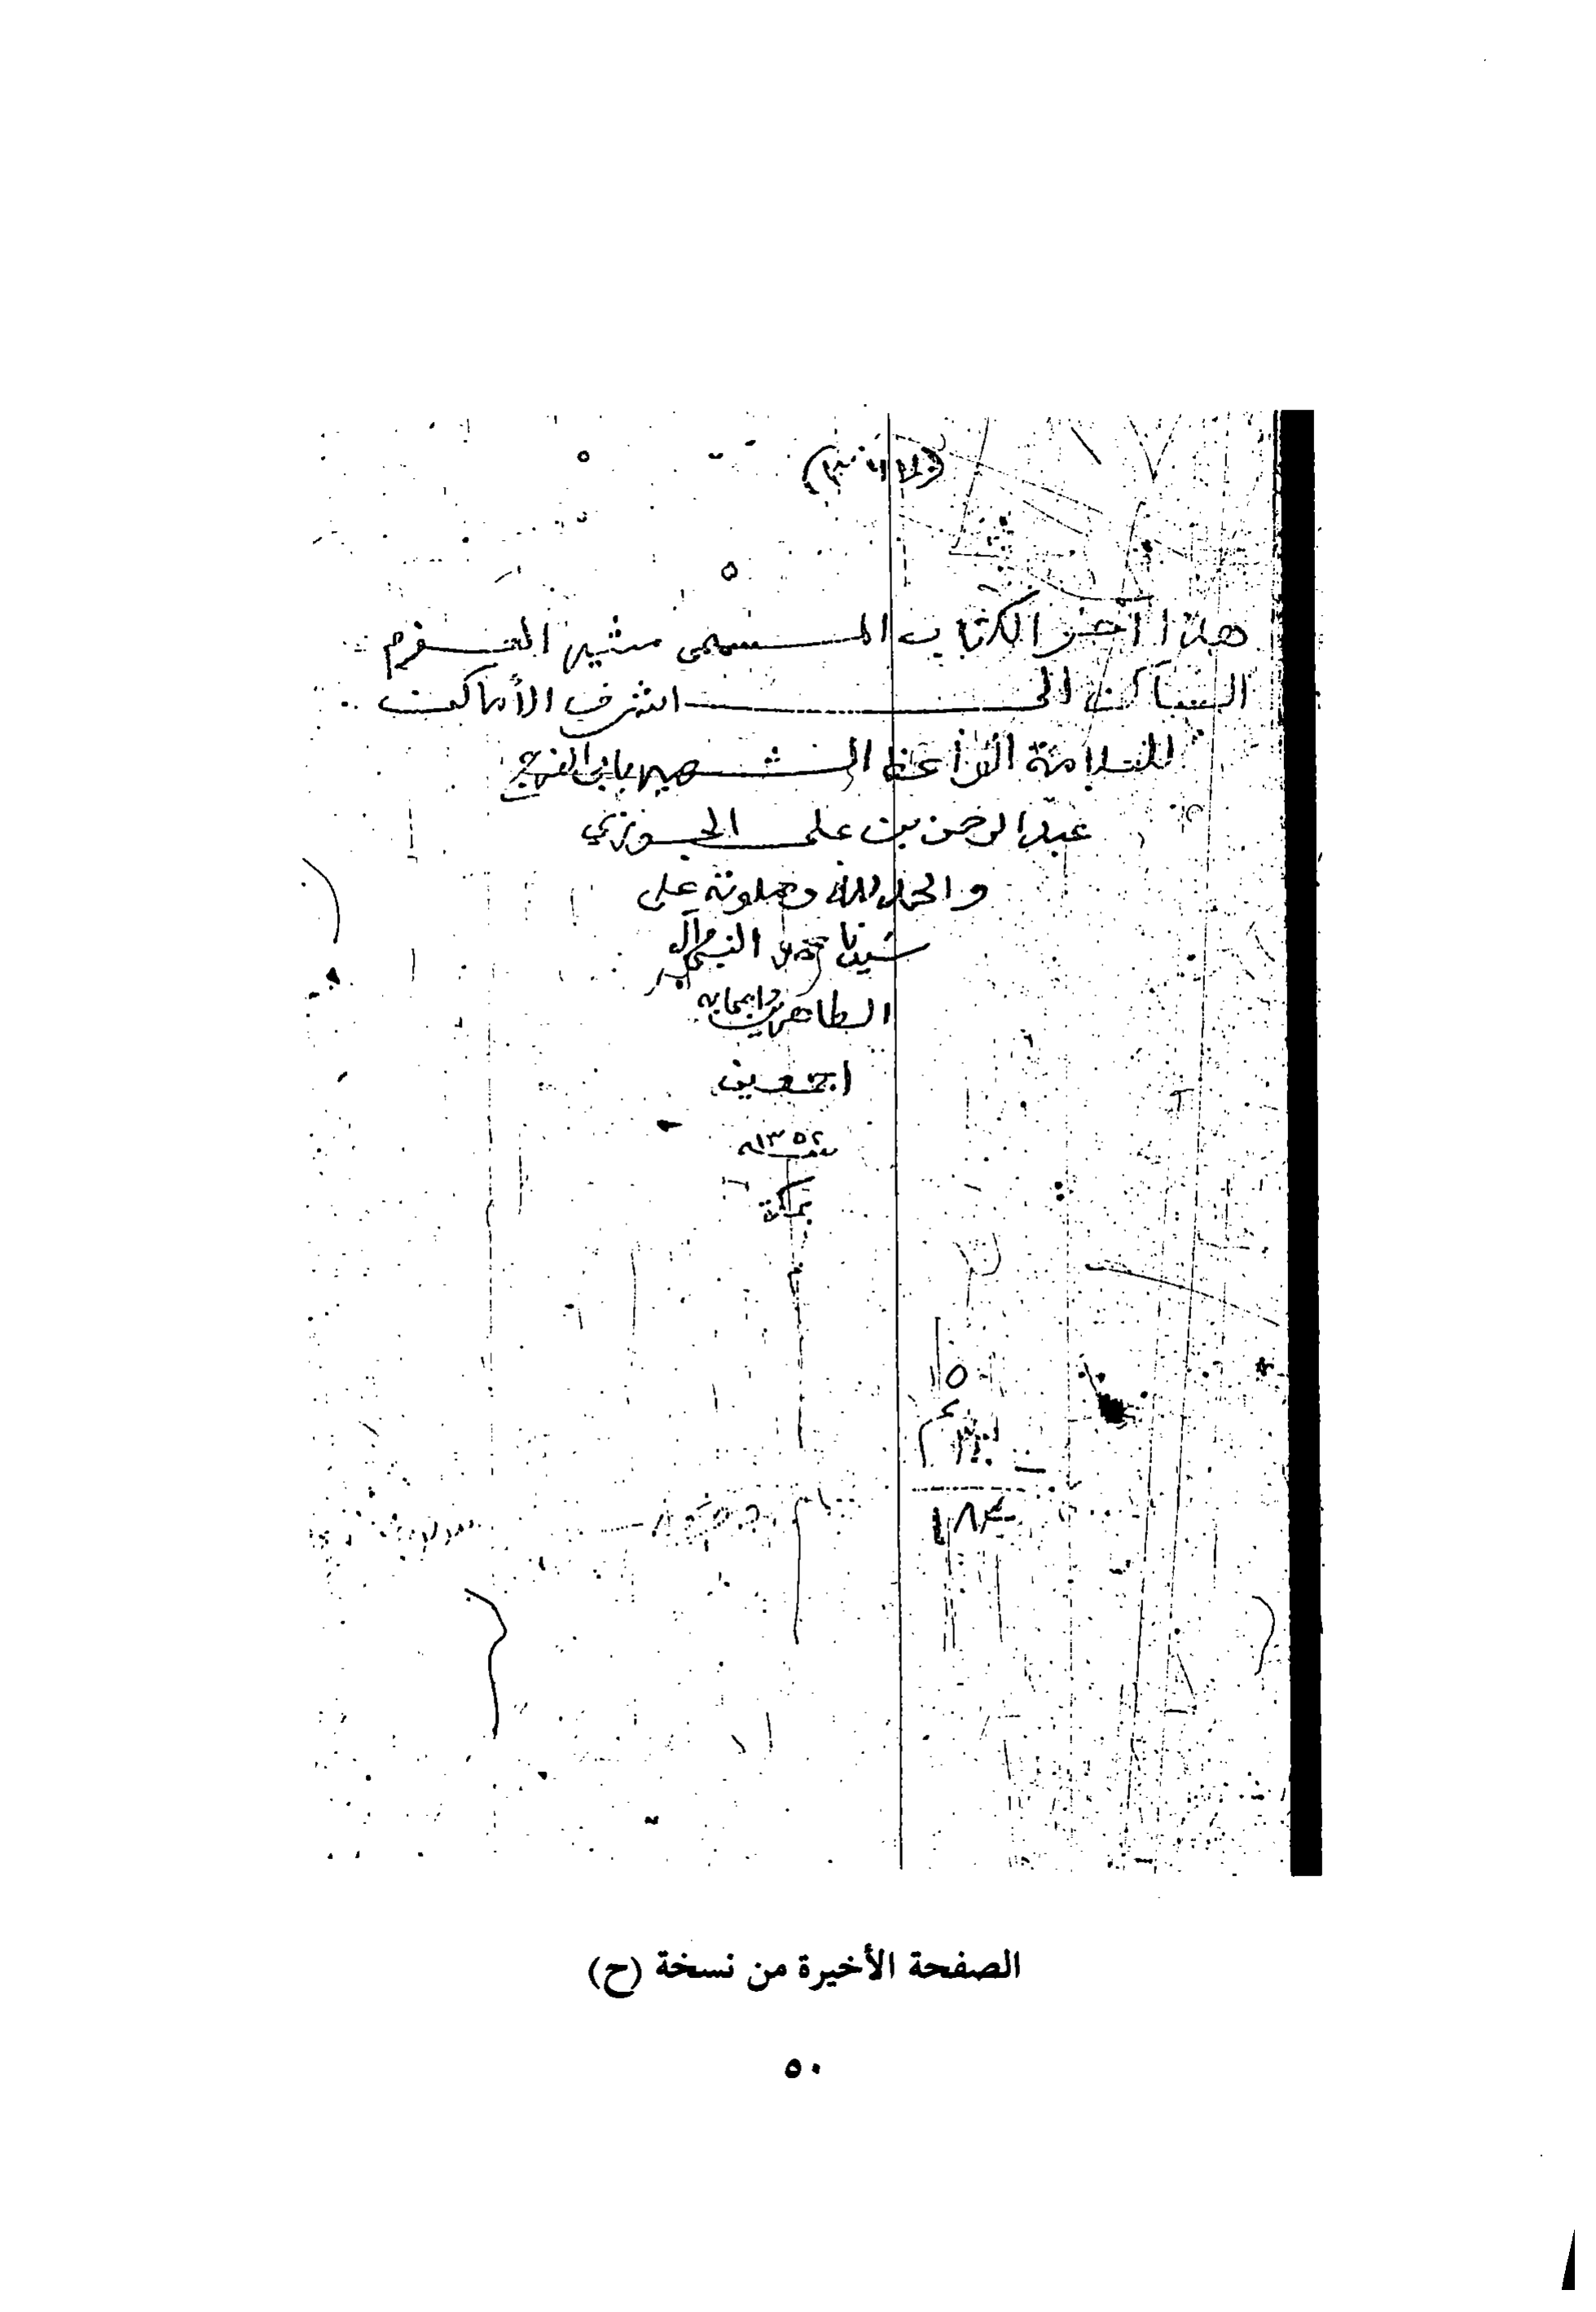 هذا آخر الكتاب المسمى مثير الغرم
الساكن الى اشرف الأماكن
للعلامة الواعظ الشهير بابي الفرج
عبد الرحمن بن علي الجوزي
والحمد لله وصلوته على
سيدنا محمد النبي وآله
الطاهرين واصحابه
اجمعين
سنة ١٣٥٢
بمكة
١٥
١٨٣
الصفحة الأخيرة من نسخة (ح)
٥٠